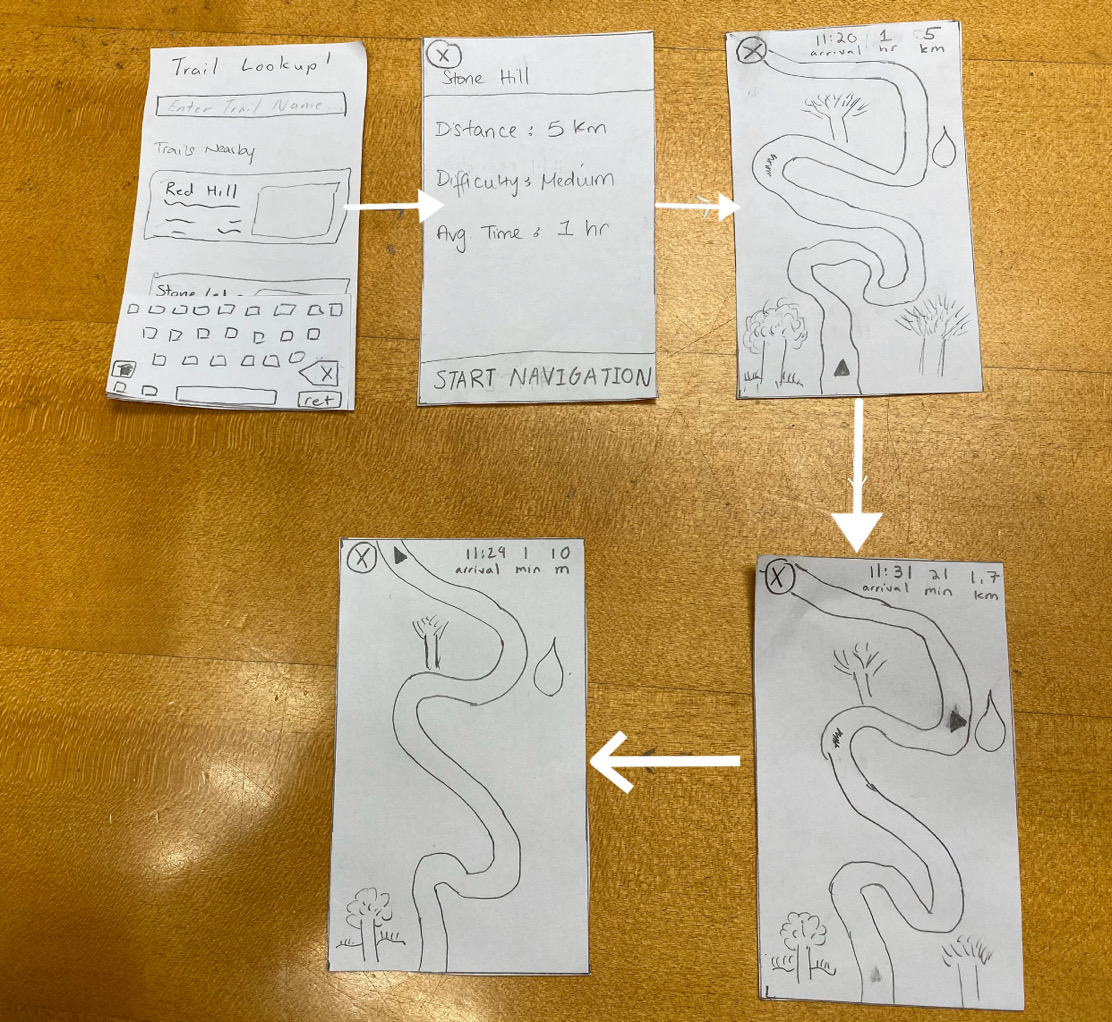 Trail Lookup!
Enter Trail Name...
Trails Nearby
Red Hill
Stone
X
ret
X
Stone Hill
Distance : 5 km
Difficulty : Medium
Avg. Time : 1 hr
START NAVIGATION
X
11:20 1 5
arrival hr km
X
11:31 21 1.7
arrival min km
X
11:29 1 10
arrival min m